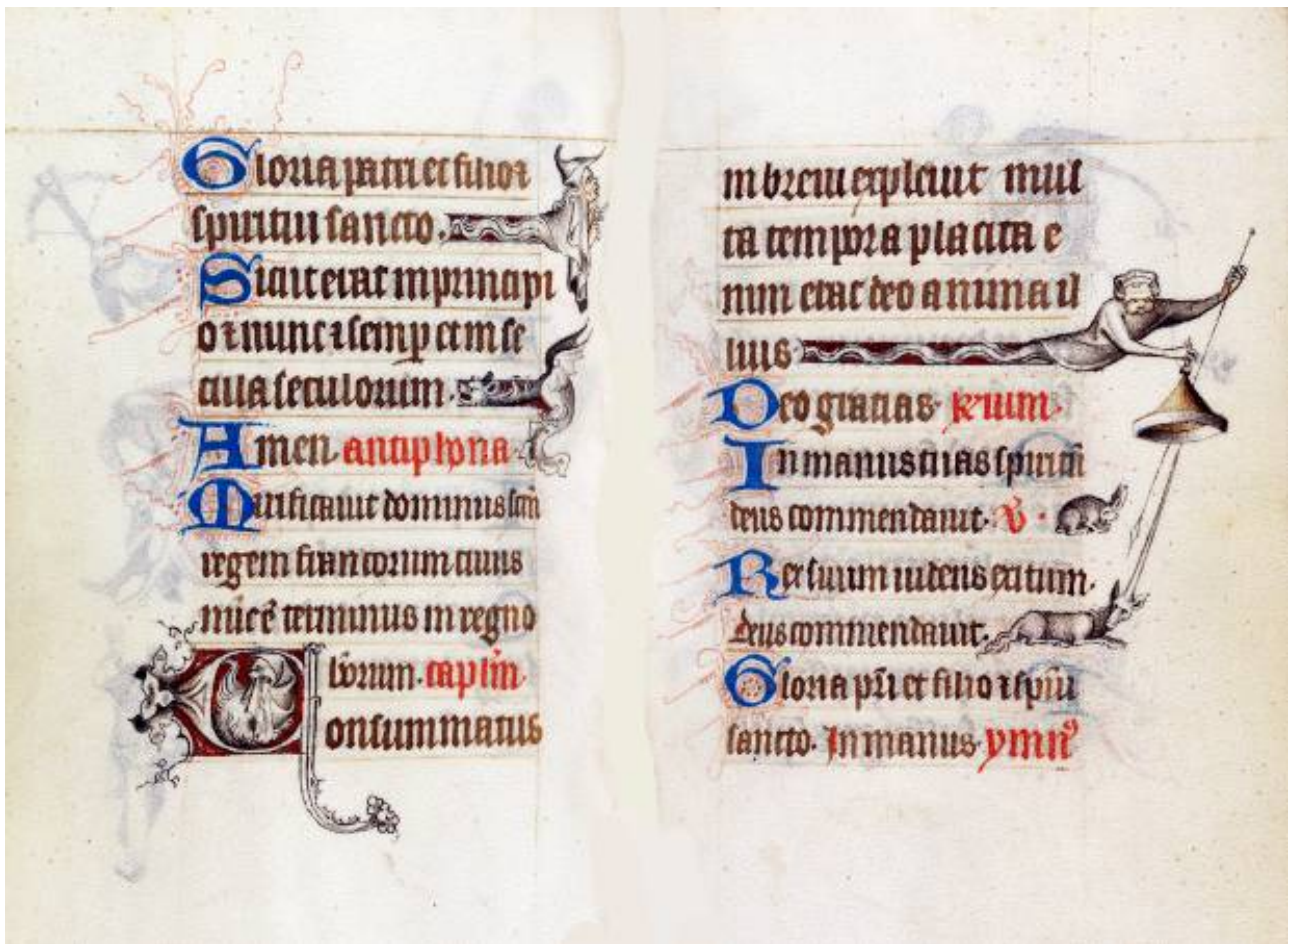 Gloria patri et filio ⁊
spiritui sancto.
Sicut erat in principi
o ⁊ nunc ⁊ semp et in se
cula seculorum.
Amen. antiphona
Mirificauit dominus scm̄
regem francorum cuius
terminus in regno
caplm̄.
Consummatus
in breui expleuit mul
ta tempora placita e
nim erat deo anima il
lius
Deo gratias.
In manus tuas spiritū
deus commendauit. V̄.
Rex suum uidens exitum.
deus commendauit.
Gloria pr̄i et filio ⁊ sp̄iui
sancto. In manus. ymnꝰ